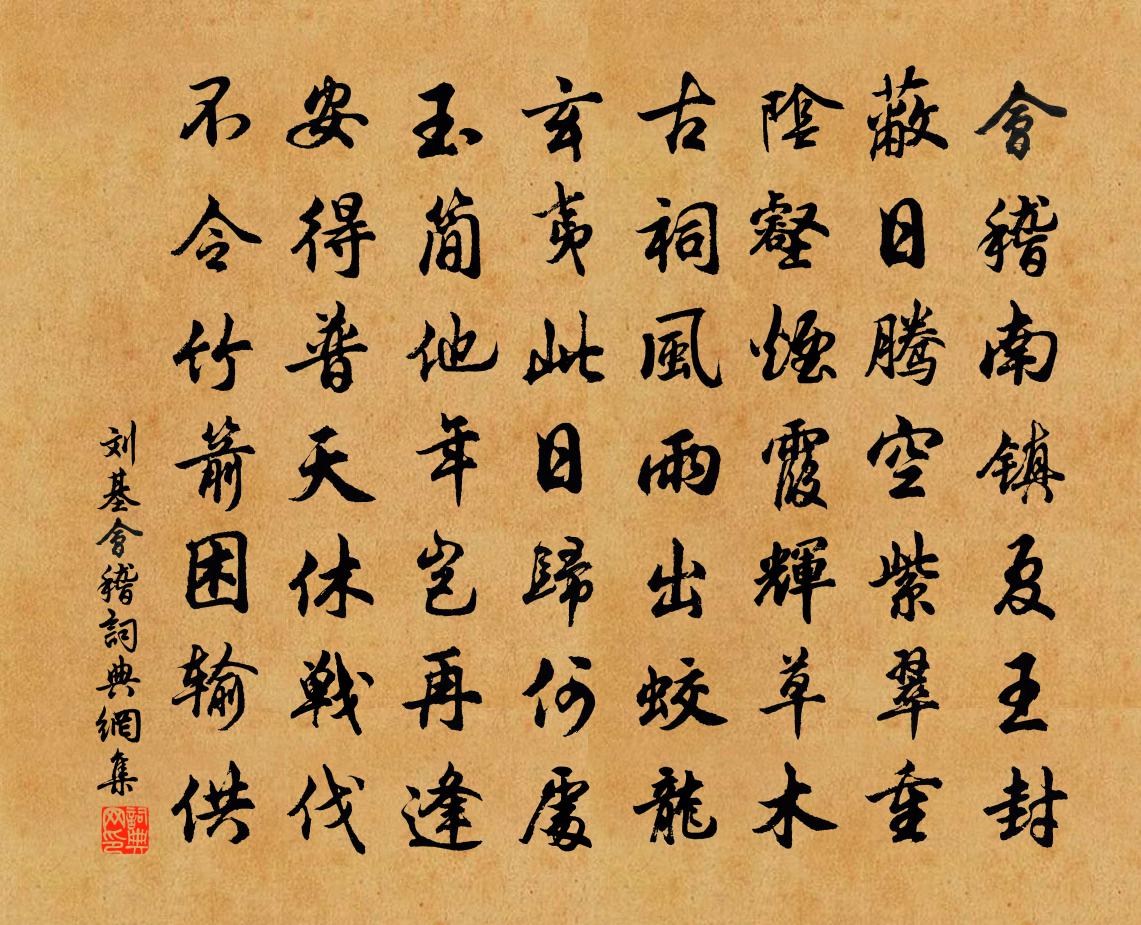 會稽南镇夏王封
蔽日騰空紫翠重
陰壑煙霞輝草木
古祠風雨出蛟龍
玄夷此日歸何處
玉简他年岂再逢
安得普天休戦伐
不令竹箭困输供
刘基會稽詞典網集
詞典网印